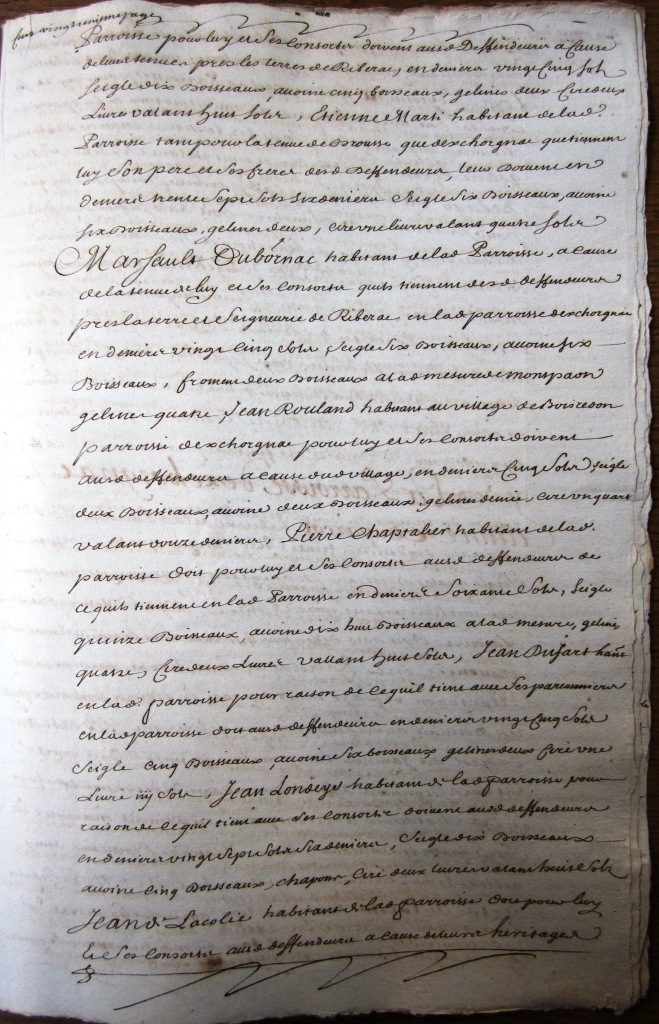 Parroisse pour luy et ses Consorts doivent aud. Deffendeur a Cause
de leur tenue pres les terres de Riberac, en deniers vingt Cinq sols
seigle dix Boisseaux, avoine cinq boisseaux, gelines deux Cire deux
Livres valant huit sols, Etienne Marti habitant de lad.
Parroisse tam pour la tenue de Brousse que dexchorgnac que tiennent
luy son pere et ses freres dud Deffendeur, leur doivent en
deniers trente sept sols six deniers Seigle six Boisseaux, avoine
six Boisseaux, gelines deux, cire une livre valant quatre sols
Marsault Dubórnac habitant de lad Parroisse, a cause
de la tenue de luy et ses Consorts quils tiennent dud deffendeur
pres la terre et Seigneurie de Riberac en lad parroisse dexchorgnac
en deniers vingt Cinq sols seigle six Boisseaux, avoine six
Boisseaux, froment deux Boisseaux a lad mesure de monspaon
gelines quatre, Jean Rouland habitant au village de Boisredon
parroisse dexchorgnac pour luy et ses Consorts doivent
aud deffendeur a cause dud village, en deniers Cinq sols, seigle
deux Boisseaux, avoine deux Boisseaux, gelines demie, cire un quart
valant douze deniers, Pierre Chaptalier habitant de lad.
parroisse doit pour luy et ses Consorts aud deffendeur de
ce quils tiennent en lad Parroisse en deniers soixante sols, seigle
quinze Boisseaux, avoine dix huit Boisseaux a lad mesure, gelines
quatre, Cire deux Livres vallant huit sols, Jean Dufart hant
en lad. parroisse pour raison de ce quil tient avec ses parconniers
en lad parroisse doit aud deffendeur en deniers vingt Cinq sols
seigle cinq Boisseaux, avoine six boisseaux gelines deux Cire une
Livre iiij sols, Jean Londeys habitant de lad parroisse pour
raison de ce quil tient avec ses Consorts doivent aud deffendeur
en deniers vingt sept sols six deniers, Seigle dix Boisseaux
avoine Cinq Boisseaux, chapons, Cire deux livres valant huit sols
Jean de Lacolie habitant de lad parroisse doit pour luy
et ses Consorts aud deffendeur a cause de leurs heritages